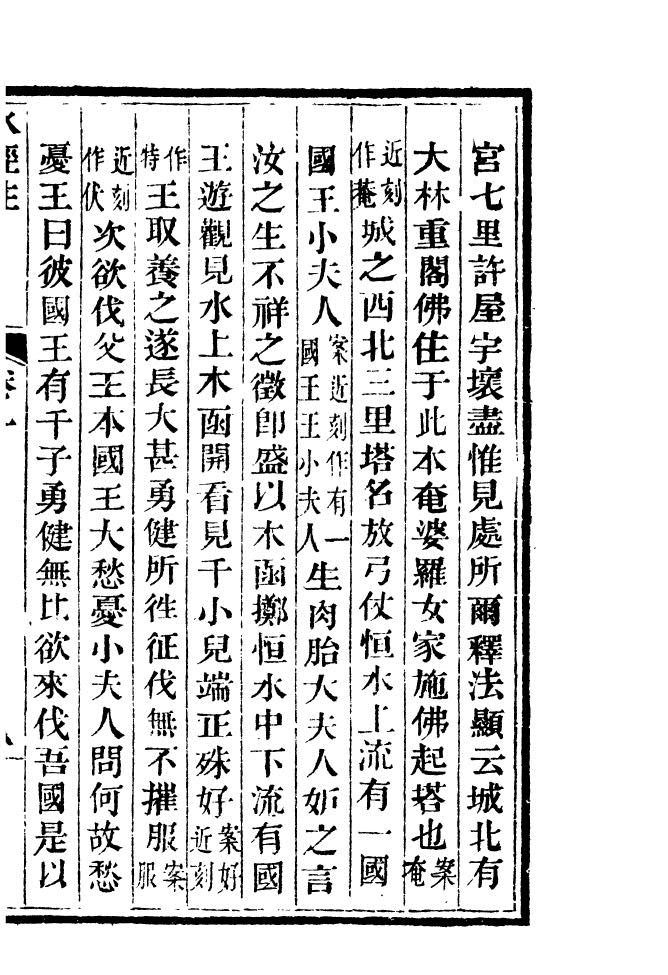 宮七里許屋宇壞盡惟見處所爾釋法顯云城北有
大林重閣佛住于此本奄婆羅女家施佛起塔也案奄
近刻作菴城之西北三里塔名放弓仗恒水上流有一國
國王小夫人案近刻作有一國王王小夫人生肉胎大夫人妒之言
汝之生不祥之徵卽盛以木函擲恒水中下流有國
王遊觀見水上木函開看見千小兒端正殊好案好近刻
作特王取養之遂長大甚勇健所徃征伐無不摧服案服
近刻作伏次欲伐父王本國王大愁憂小夫人問何故愁
憂王曰彼國王有千子勇健無比欲來伐吾國是以
水經注 卷一 八